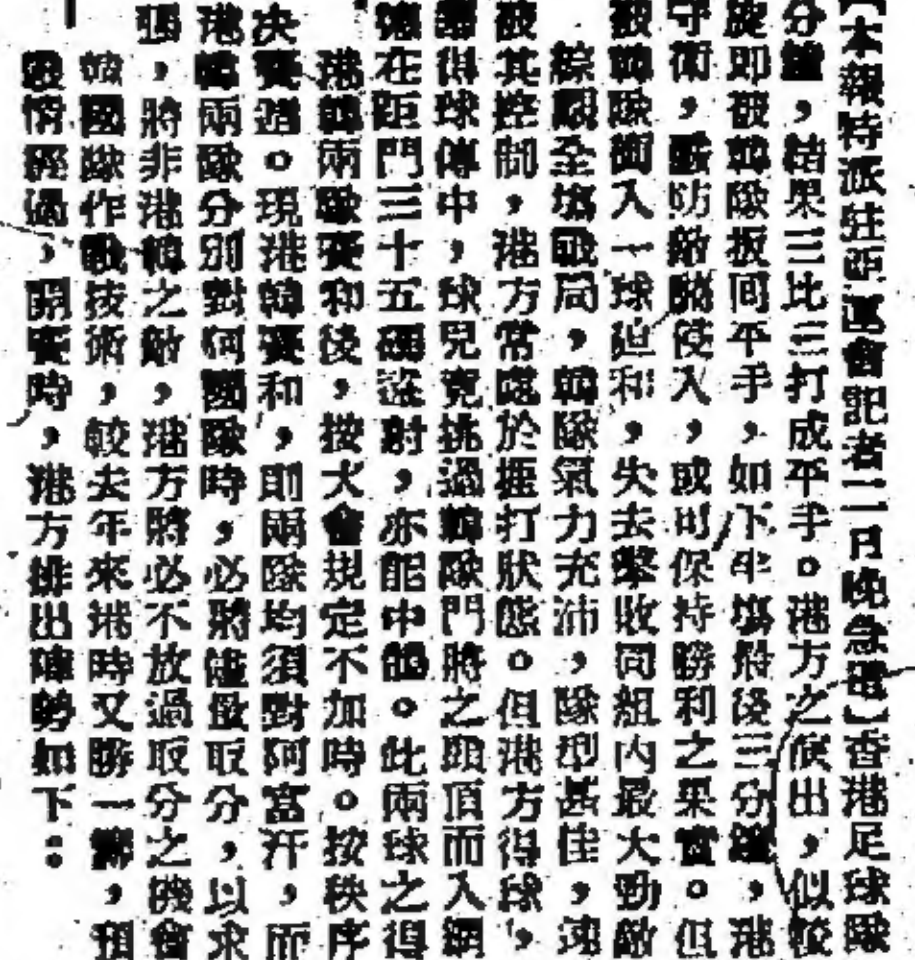 【本報特派駐亞運會記者二日晚急電】香港足球隊
分鐘，結果三比三打成平手。港方之演出，似較
旋即被韓隊扳回平手，如下半塲最後三分鐘，港
守衛，嚴防敵騎侵入，或可保持勝利之果實。但
被韓隊衝入一球迫和，失去擊敗同組內最大勁敵
綜觀全塲戰局，韓隊氣力充沛，隊型甚佳，速
被其控制，港方常處於捱打狀態。但港方得球，
得球傳中，球兒竟挑過韓隊門將之頭頂而入網
在距門三十五碼盜射，亦能中鵠。此兩球之得
港韓兩隊賽和後，按大會規定不加時。按秩序
決賽週。現港韓賽和，則兩隊均須對阿富汗，而
港韓兩隊分別對何國隊時，必將儘量取分，以求
，將非港韓之敵，港方將必不放過取分之機會
韓國隊作戰技術，較去年來港時又勝一籌，預
戰情經過，開賽時，港方排出陣勢如下：